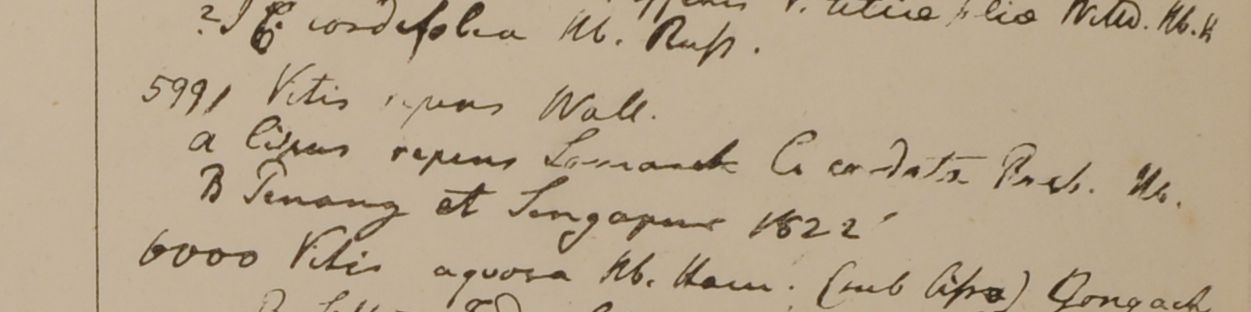 V. Hb.
? C. cordifolia Hb. Russ.
5991 Vitis repens Wall.
a Cissus repens Lamarck C. cordata Roxb. Hb.
B Penang et Singapur 1822
6000 Vitis aquosa Hb. Ham. (sub Cisso) Gongach
B